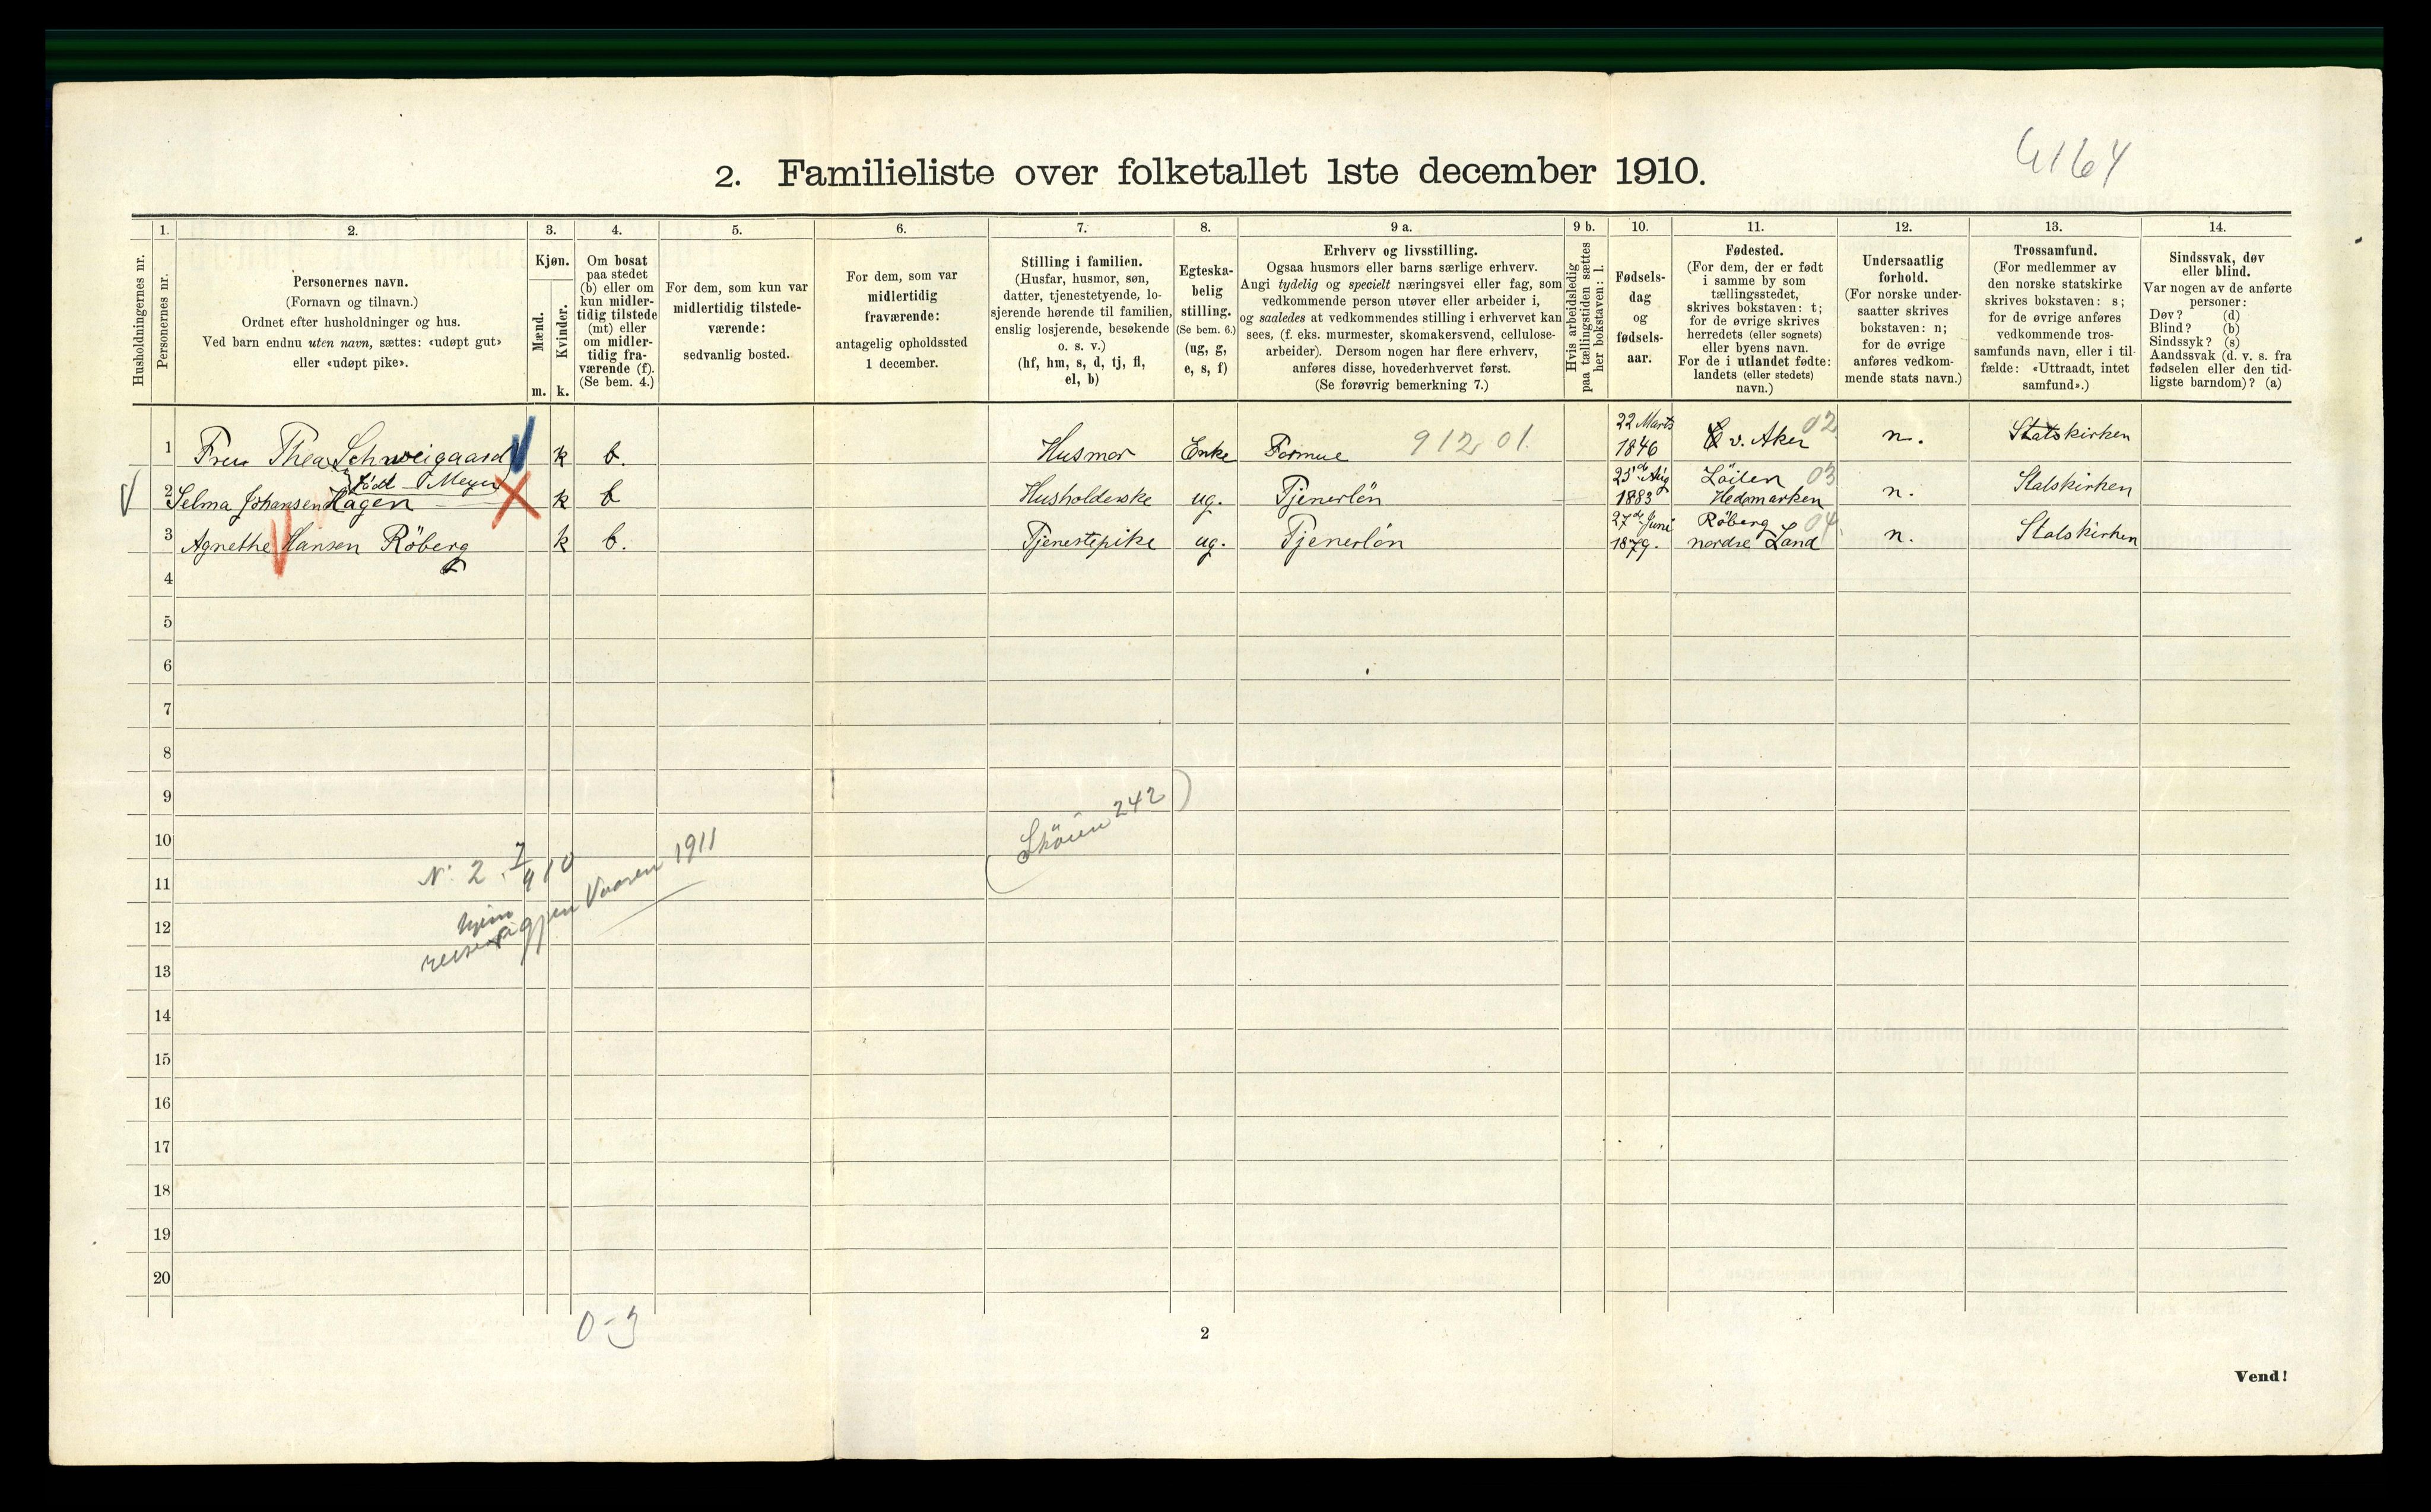 4164
2. Familieliste over folketallet 1ste december 1910.
Husholdningernes nr.
1.
Personernes nr.
2.
Personernes navn.
(Fornavn og tilnavn.)
Ordnet efter husholdninger og hus.
Ved barn endnu uten navn, sættes: «udøpt gut»
eller «udøpt pike».
3.
Kjøn.
Mænd.
Kvinder.
m. k.
4.
Om bosat
paa stedet
(b) eller om
kun midler-
tidig tilstede
(mt) eller
om midler-
tidig fra-
værende (f).
(Se bem. 4.)
5.
For dem, som kun var
midlertidig tilstede-
værende:
sedvanlig bosted.
6.
For dem, som var
midlertidig
fraværende:
antagelig opholdssted
1 december.
7.
Stilling i familien.
(Husfar, husmor, søn,
datter, tjenestetyende, lo-
sjerende hørende til familien,
enslig losjerende, besøkende
o. s. v.)
(hf, hm, s, d, tj, fl,
el, b)
8.
Egteska-
belig
stilling.
(Se bem. 6.)
(ug, g,
e, s, f)
9 a.
Erhverv og livsstilling.
Ogsaa husmors eller barns særlige erhverv.
Angi tydelig og specielt næringsvei eller fag, som
vedkommende person utøver eller arbeider i,
og saaledes at vedkommendes stilling i erhvervet kan
sees, (f. eks. murmester, skomakersvend, cellulose-
arbeider). Dersom nogen har flere erhverv,
anføres disse, hovederhvervet først.
(Se forøvrig bemerkning 7.)
9 b.
Hvis arbeidsledig
paa tællingstiden sættes
her bokstaven: l.
10.
Fødsels-
dag
og
fødsels-
aar.
11.
Fødested.
(For dem, der er født
i samme by som
tællingsstedet,
skrives bokstaven: t;
for de øvrige skrives
herredets (eller sognets)
eller byens navn.
For de i utlandet fødte:
landets (eller stedets)
navn.)
12.
Undersaatlig
forhold.
(For norske under-
saatter skrives
bokstaven: n;
for de øvrige
anføres vedkom-
mende stats navn.)
13.
Trossamfund.
(For medlemmer av
den norske statskirke
skrives bokstaven: s;
for de øvrige anføres
vedkommende tros-
samfunds navn, eller i til-
fælde: «Uttraadt, intet
samfund».)
14.
Sindssvak, døv
eller blind.
Var nogen av de anførte
personer:
Døv? (d)
Blind? (b)
Sindssyk? (s)
Aandssvak (d. v. s. fra
fødselen eller den tid-
ligste barndom)? (a)
1 Fru Thea Schweigaard k b. Husmor Enke Formue 912 01. 22 Marts 1846 v. Aker 02 n. Statskirken
født Meyer
2 Selma Johansen Hagen k b Husholderske ug. Tjenerlön 25de Aug 1883 Löiten Hedemarken 03 n. Statskirken
3 Agnethe Hansen Röberg k b. Tjenestepike ug. Tjenerlön 27de Juni 1879. Röberg nordre Land 04 n. Statskirken
4
5
6
7
8
9
10
11
12
13
14
15
16
17
18
19
20
(Sköien 242)
N: 2. 7/9 10
hjem
reiser igjen Vaaren 1911
0-3
2
Vend!